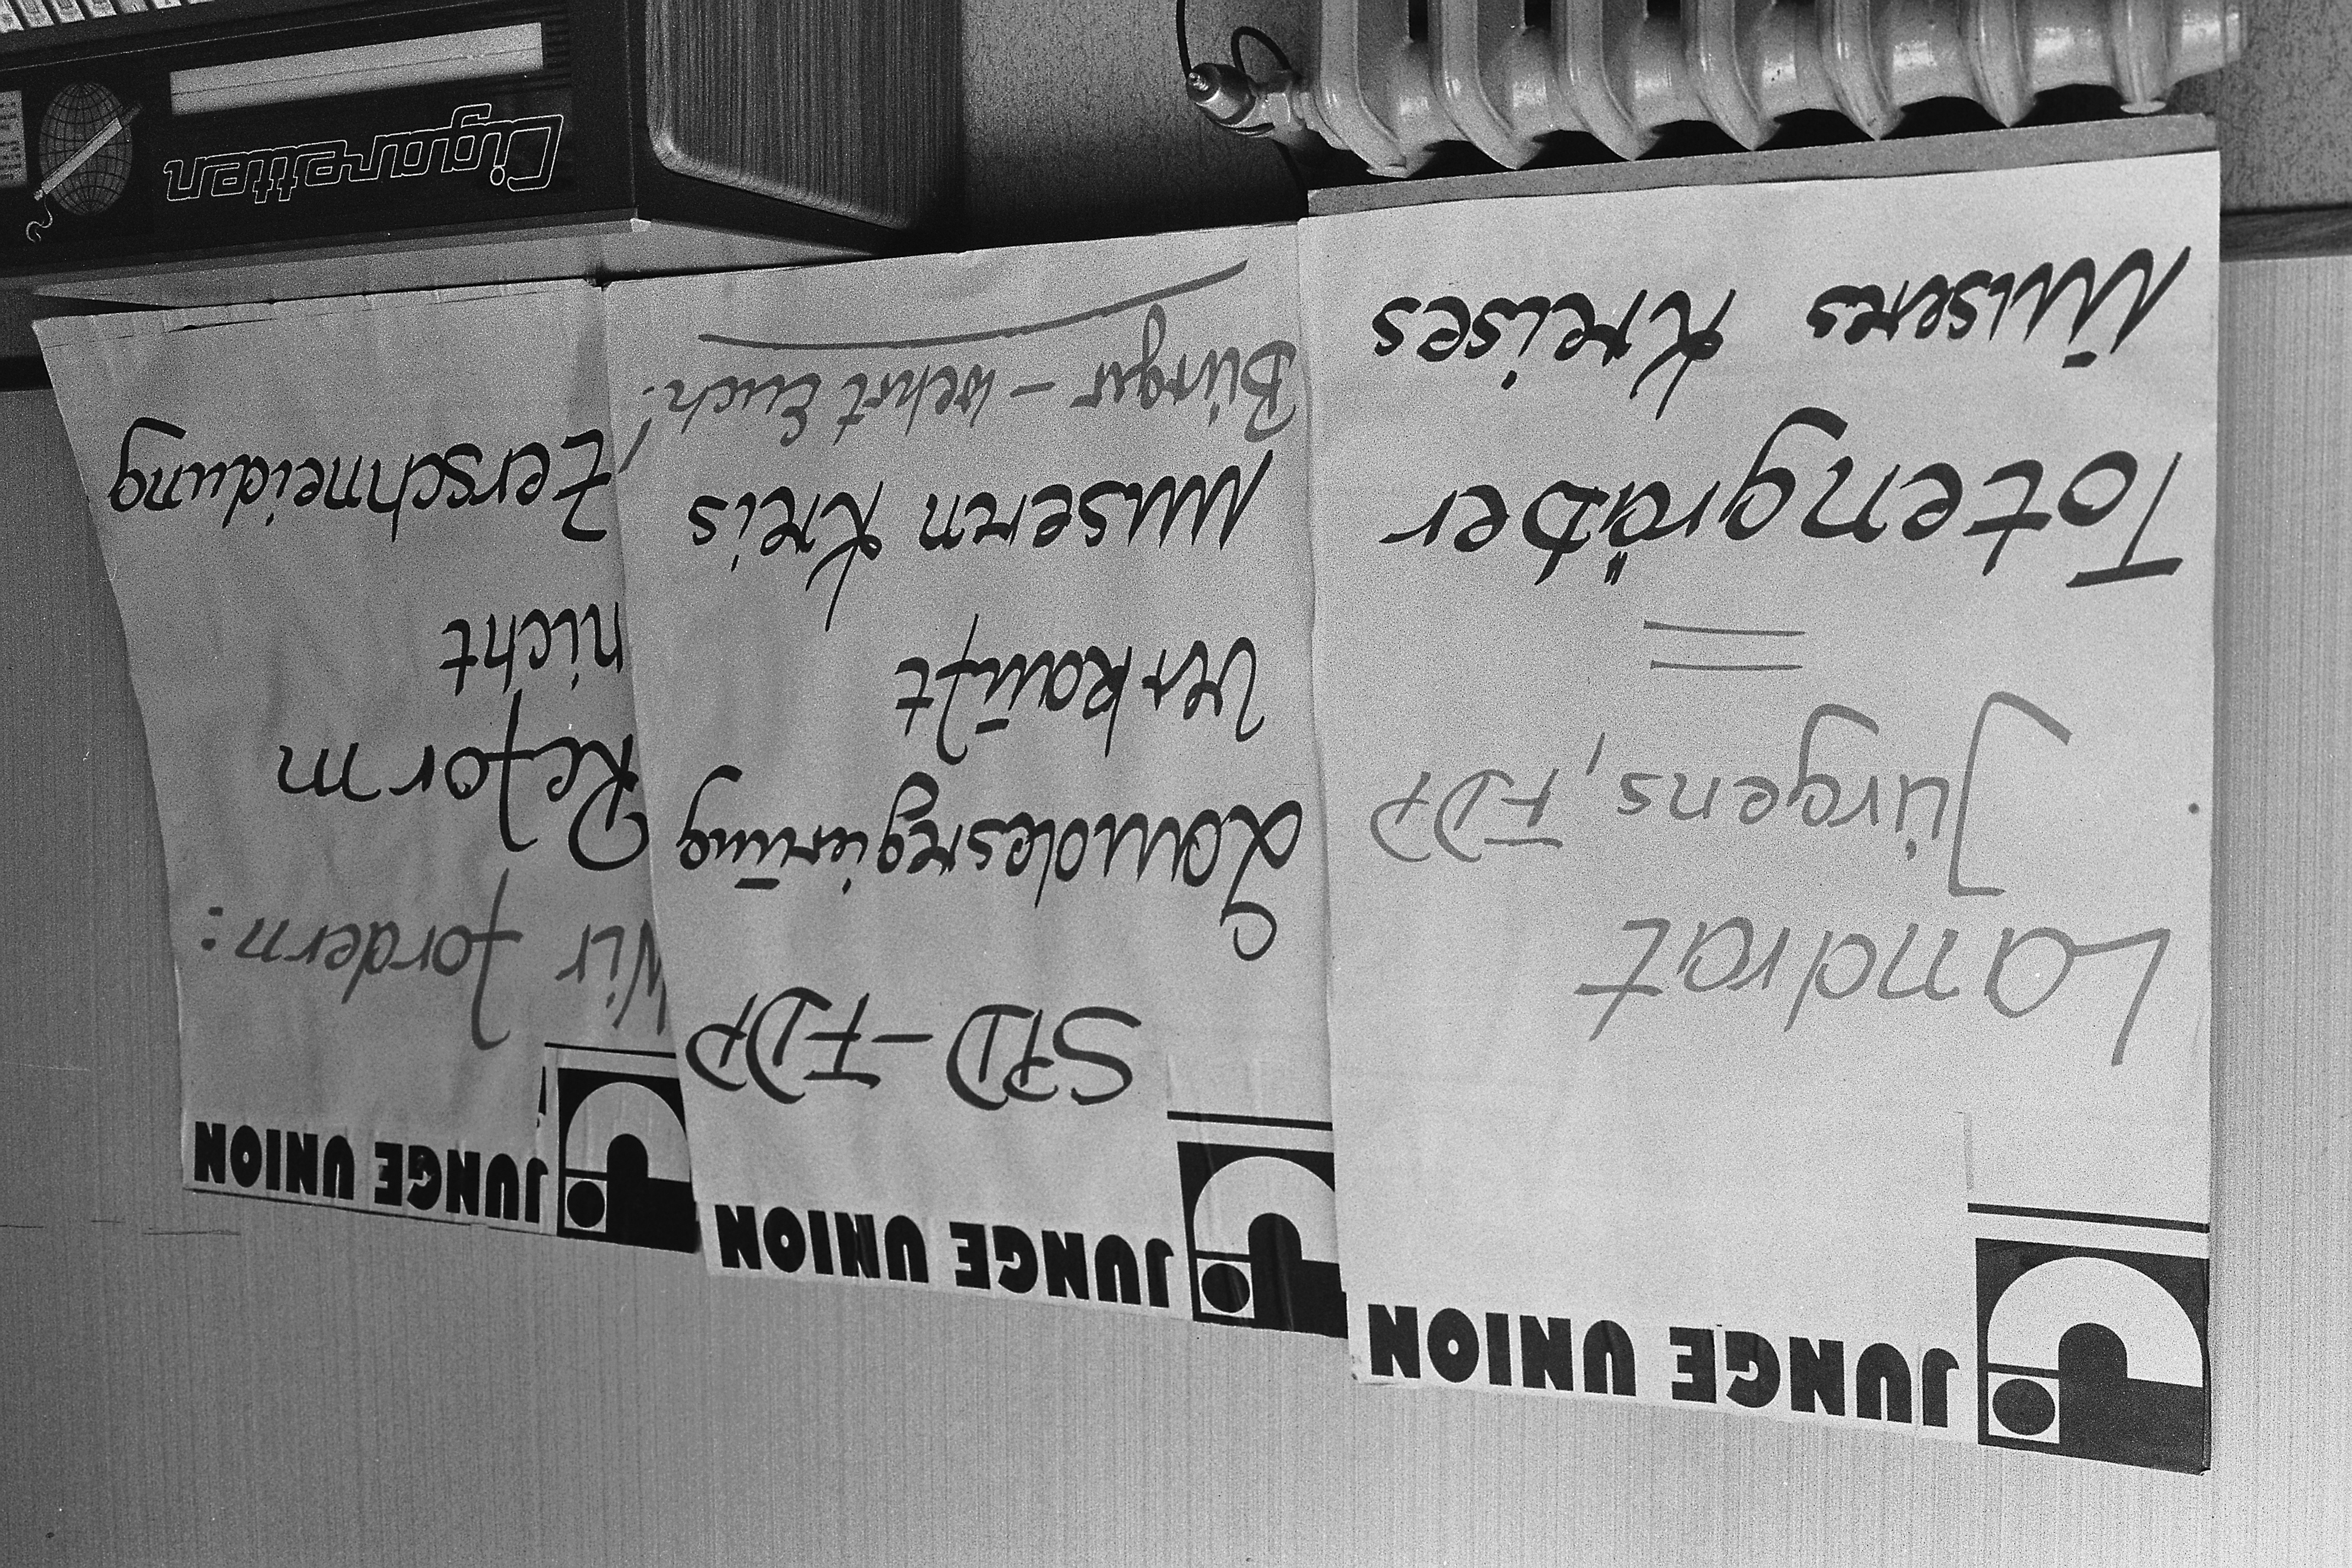 JUNGE UNION
Landrat
Jürgens, FDP
=
Totengräber
unseres Kreises
JUNGE UNION
SPD-FDP
Landesregierung
Verkauft
unseren Kreis
Bürger - wehrt Euch!
JUNGE UNION
Wir fordern:
Reform
nicht
Zerschneidung
Cigaretten